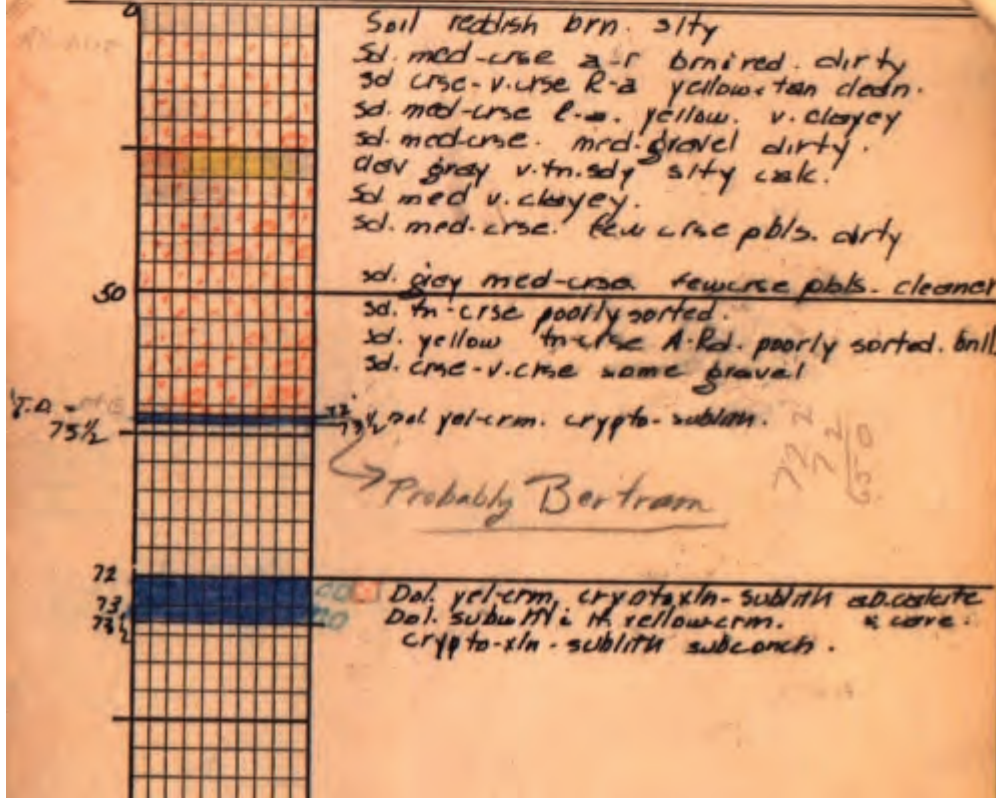 0
Soil reddish brn. slty
Sd. med-crse a-r brn&red. dirty
sd crse-v.crse R-a yellow&tan clean.
sd. med-crse yellow. v. clayey
sd. med-crse. med. gravel dirty.
clay gray v.fn.sdy slty calc.
sd med v. clayey.
sd. med-crse. few crse pbls. dirty
sd. gray med-crse few crse pbls. cleaner
50
sd. fn-crse poorly sorted.
sd. yellow fn-crse A-Rd. poorly sorted.
sd. crse-v.crse some gravel
T.D. -
73½
72'
73½ Dol. yel-crm. crypto-sublith.
72
72
650
Probably Bertram
72
73
73½
Dol. yel-crm, cryptoxln-sublith
Dol. yellow crm.
crypto-xln-sublith subconch.